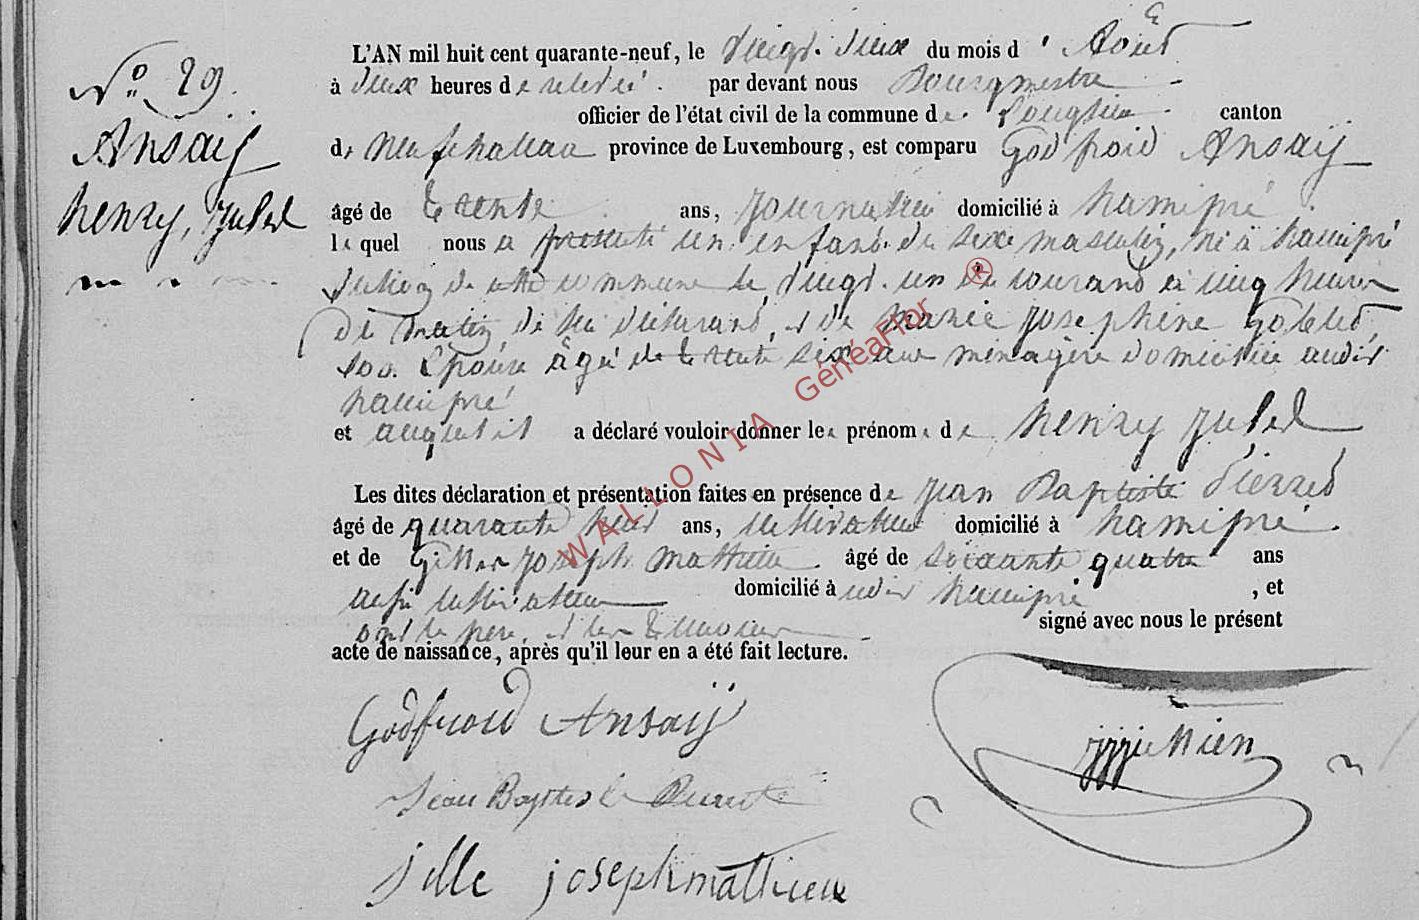 N° 29.
Ansaÿ
henry, jubel
L'AN mil huit cent quarante-neuf, le vingt deux du mois d' Août
à deux heures de relevée. par devant nous Bourgmestre
officier de l'état civil de la commune de Longlier canton
de Neufchateau province de Luxembourg, est comparu Godfroid Ansaÿ
âgé de trente ans, journalier domicilié à hamipré
lequel nous a presenté un enfant du sexe masculin, né à hamipré
section de cette commune le vingt un du courant à cinq heures
du matin de lui déclarant, et de marie josephine
son Epouse âgé de trente six ans ménagère domiciliée audit
hamipré
et auquel il a déclaré vouloir donner les prénoms de henry jubel
Les dites déclaration et présentation faites en présence de jean Baptiste Pierret
âgé de quarante neuf ans, cultivateur domicilié à hamipré
et de Gilles joseph mathieu âgé de soixante quatre ans
aussi cultivateur domicilié à udit hamipré, et
ont le père, et les témoins signé avec nous le présent
acte de naissance, après qu'il leur en a été fait lecture.
Godfroid Ansaÿ
Jean Baptiste
jille joseph mathieu
WALLONIA GénéaFlor ®